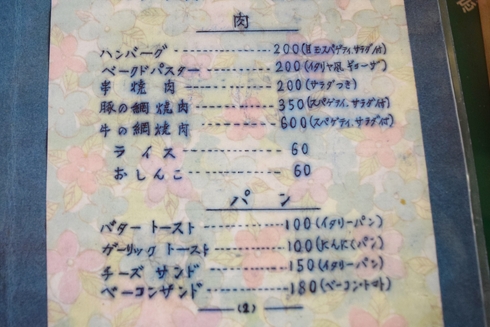 肉
ハンバーグ 200(目玉スパゲティ、サラダ付)
ベークドパスター 200(イタリヤ風、ギョーザ)
串焼肉 200(サラダつき)
豚の網焼肉 350(スパゲティ、サラダ付)
牛の網焼肉 600(スパゲティ、サラダ付)
ライス 60
おしんこ 60
パン
バタートースト 100(イタリーパン)
ガーリックトースト 100(にんにくパン)
チーズサンド 150(イタリーパン)
ベーコンサンド 180(ベーコン・トマト)
(2)